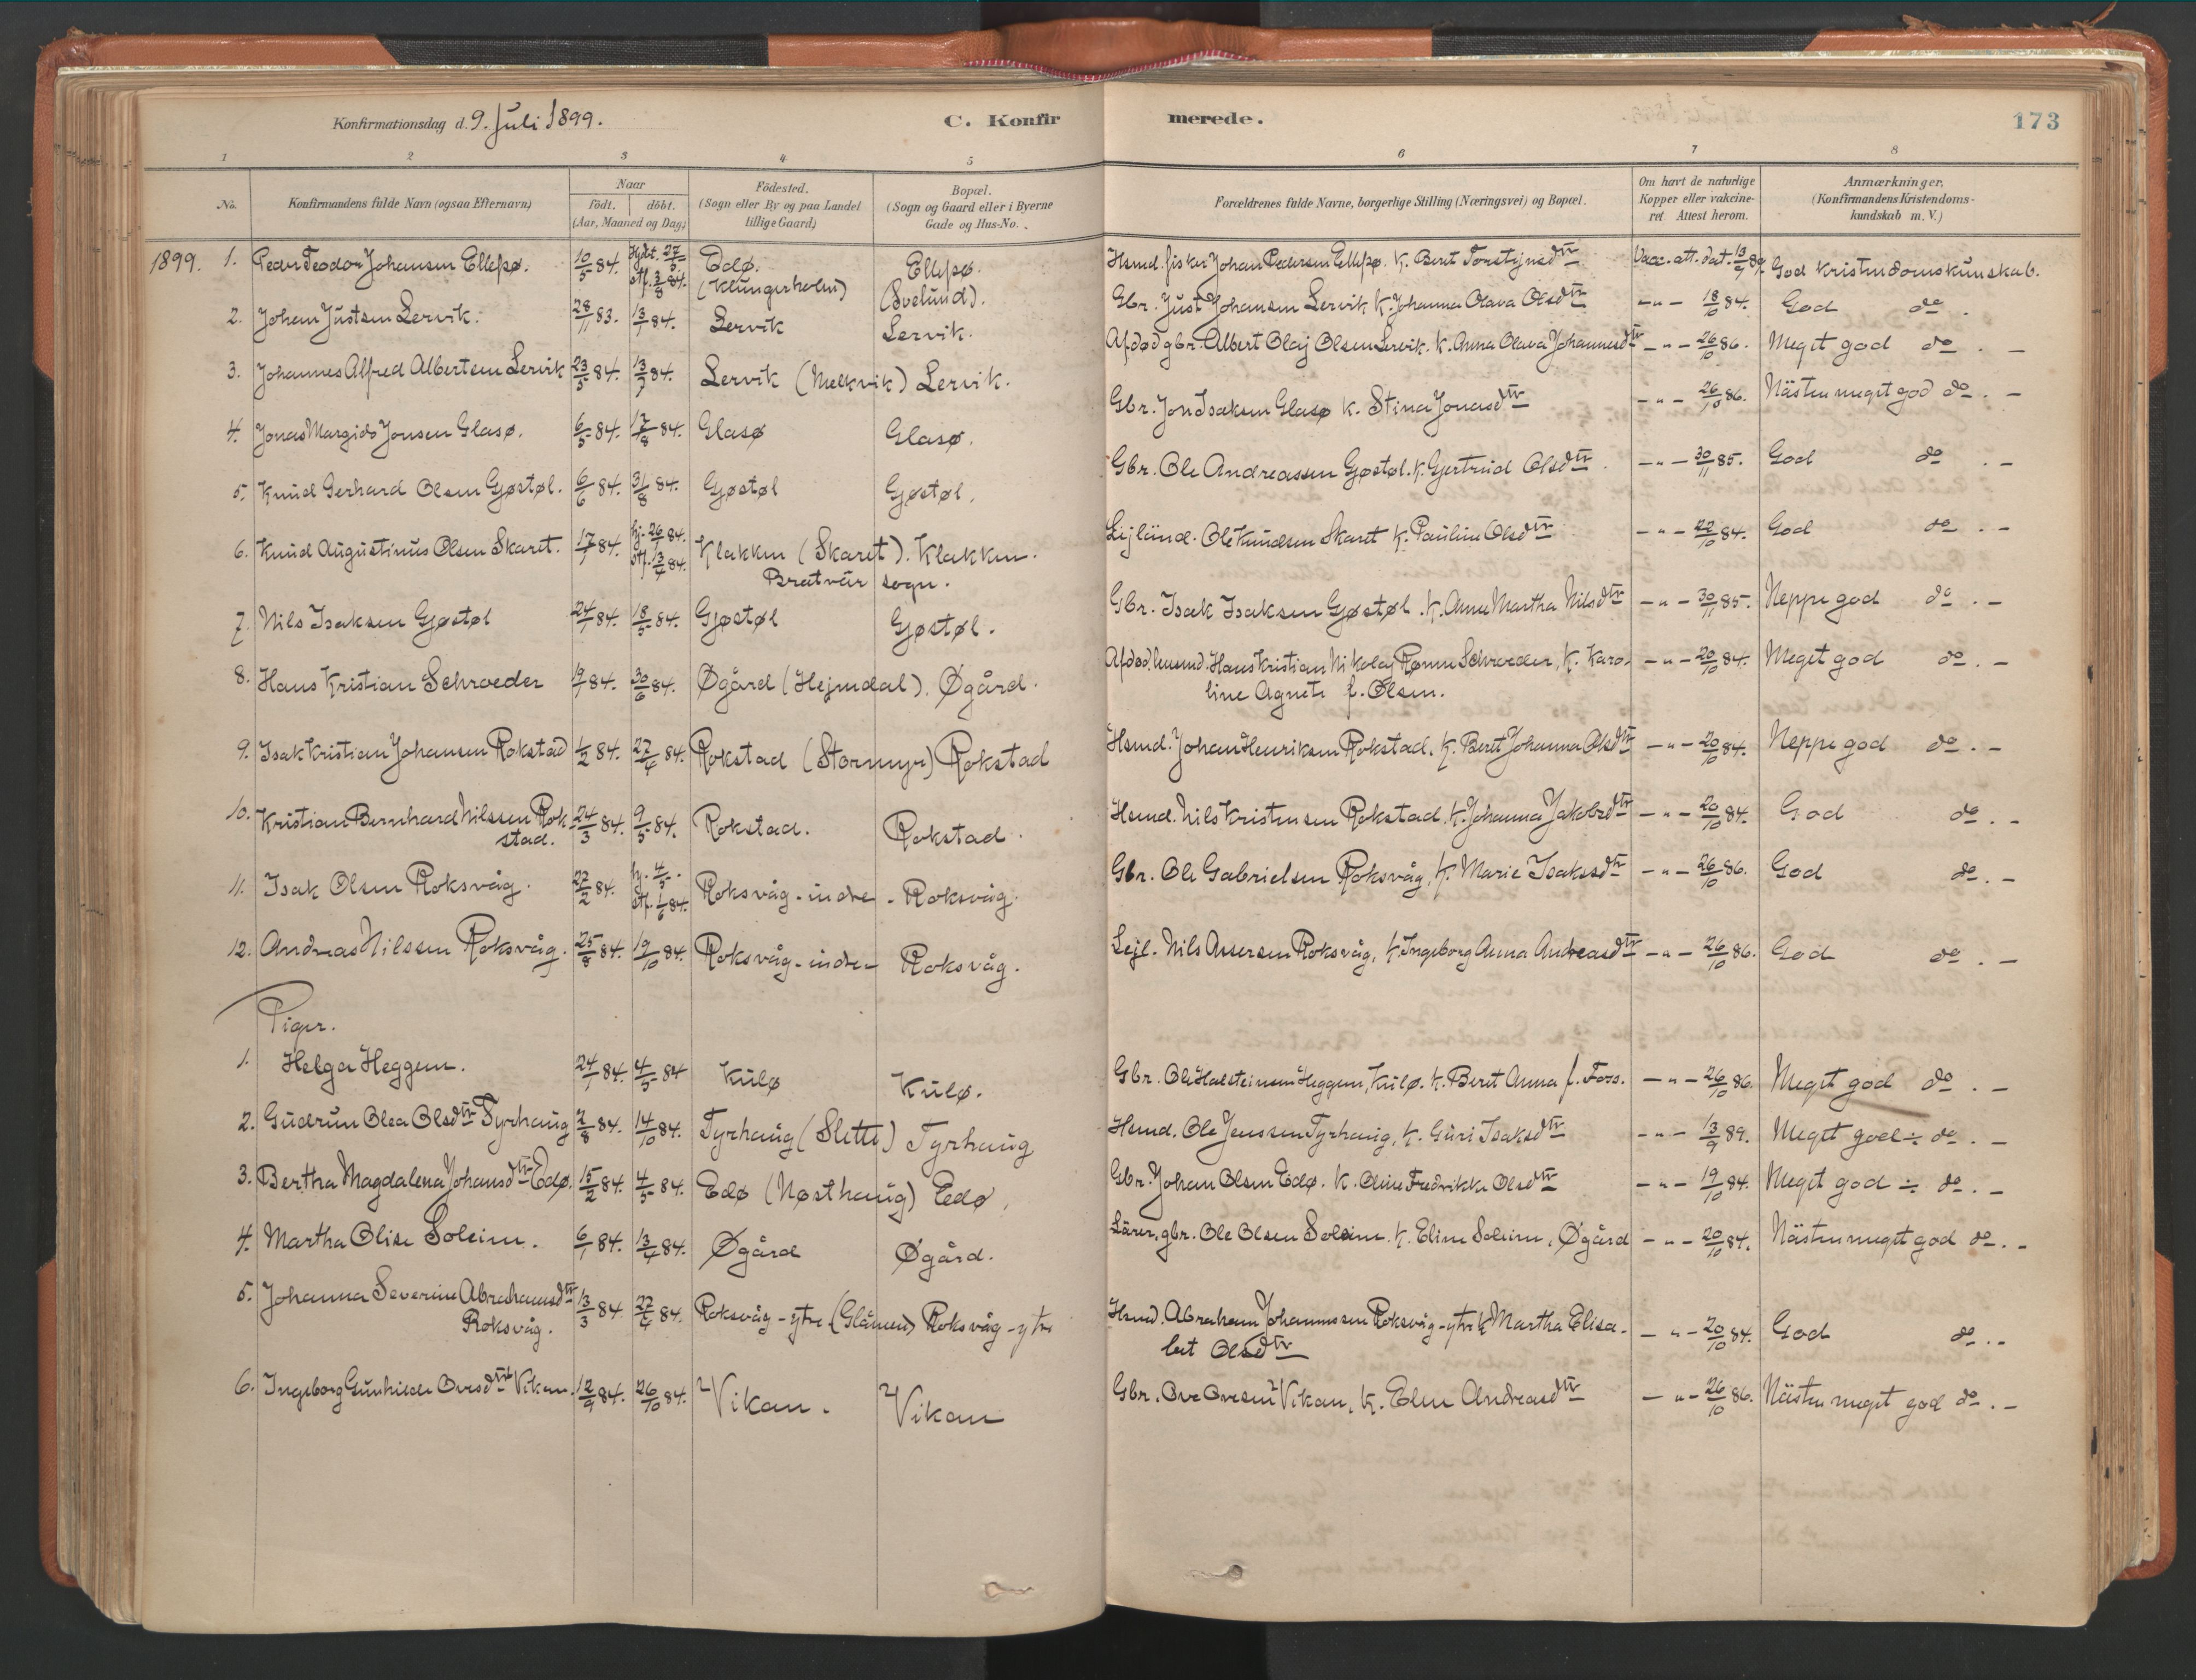 Konfirmationsdag d. 9. Juli 1899. C. Konfirmerede. 173
1 2 3 4 5 6 7 8
No. Konfirmandens fulde Navn (ogsaa Efternavn) Naar født. døbt. (Aar, Maaned og Dag) Födested. (Sogn eller By og paa Landet tillige Gaard) Bopæl. (Sogn og Gaard eller i Byerne Gade og Hus-No. Forældrenes fulde Navne, borgerlige Stilling (Næringsvei) og Bopæl. Om havt de naturlige Kopper eller vakcineret. Attest herom. Anmærkninger, (Konfirmandens Kristendomskundskab m. V.)
1899. 1. Peder Teodor Johansen Ellepø. 10/5 84. Hjdt. 27/5 stf. 3/8 84. Edø. (Klungerholm) Ellepø. (Svelund). Hsmd. fisker Johan Pedersen Ellepø. K. Beret Torstejnsdtr Vacc. att. dat. 13/9 89. God kristendomskunskab.
2. Johan Justsen Lervik. 28/11 83. 13/1 84. Lervik Lervik. Gbr. Just Johansen Lervik K. Johanna Olava Olsdtr – " – 18/10 84. God do.
3. Johannes Alfred Albertsen Lervik 23/5 84. 13/7 84. Lervik (Melkvik) Lervik. Afdød gbr. Albert Olaj Olsen Lervik. K. Anna Olava Johannesdtr – " – 26/10 86. Meget god do. –
4. Jonas Margido Jonsen Glasø. 6/5 84. 17/8 84. Glasø Glasø. Gbr. Jon Isaksen Glasø K. Stina Jonasdtr – " – 26/10 86. Nästen meget god do. –
5. Knud Gerhard Olsen Gjøstøl. 6/6 84. 31/8 84. Gjøstøl Gjøstøl. Gbr. Ole Andreassen Gjøstøl. K. Gjertrud Olsdtr. – " – 30/11 85. God do. –
6. Knud Augustinus Olsen Skaret. 17/1 84. hj. 26/1 84. stf. 13/4 84. Klakken (Skaret). Klakken. Bratvär sogn. Lejlænd. Ole Knudsen Skaret K. Pauline Olsdtr – " – 22/10 84. God do. –
7. Nils Isaksen Gjøstøl 24/1 84. 18/5 84. Gjøstøl Gjøstøl. Gbr. Isak Isaksen Gjøstøl. K. Anne Martha Nilsdtr – " – 30/11 85. Neppe god do. –
8. Hans Kristian Schroeder 19/1 84. 30/6 84. Øgård (Hejmdal). Øgård. Afdød lensmd. Hans Kristian Nikolaj Rønne Schroeder, K. Karoline Agnete f. Olsen. – " – 20/10 84. Meget god do. –
9. Isak Kristian Johansen Rokstad 1/2 84. 27/4 84. Rokstad (Stormyr) Rokstad Hsmd. Johan Henriksen Rokstad. K. Beret Johanna Olsdtr – " – 20/10 84. Neppe god do. –
10. Kristian Bernhard Nilssen Rokstad. 24/3 84. 9/5 84. Rokstad. Rokstad. Hsmd. Nils Kristensen Rokstad. K. Johanna Jakobsdtr – " – 20/10 84. God do. –
11. Isak Olsen Roksvåg. 27/2 84. hj. 4/5. stf. 1/6 84. Roksvåg - indre - Roksvåg. Gbr. Ole Gabrielsen Roksvåg, K. Marie Isaksdtr – " – 26/10 86. God do. –
12. Andreas Nilssen Roksvåg. 25/8 84. 19/10 84. Roksvåg - indre Roksvåg. Lejl. Nils Assersen Roksvåg, K. Ingeborg Anna Andreasdtr – " – 26/10 86. God do. –
Piger.
1. Helga Heggem. 24/1 84. 4/5 84 Kulø Kulø. Gbr. Ole Halsteinsen Heggem, Kulø. K. Beret Anna f. Foss. – " – 26/10 86. Meget god do. –
2. Gudrun Olea Olsdtr Tyrhaug 2/8 84. 14/10 84. Tyrhaug (Slette) Tyrhaug Hsmd. Ole Jenssen Tyrhaug, K. Guri Isaksdtr – " – 13/9 89. Meget god ÷ do. –
3. Bertha Magdalena Johansdtr Edø. 15/2 84. 4/5 84. Edø (Nøsthaug) Edø. Gbr. Johan Olsen Edø. K. Oline Fredrikke Olsdtr – " – 19/10 84. Meget god ÷ do. –
4. Martha Olise Soleim. 6/1 84. 13/4 84. Øgård Øgård. Lärer, gbr. Ole Olsen Soleim. K. Eline Soleim, Øgård – " – 20/10 84. Nästen meget god do. –
5. Johanna Severine Abrahamsdtr Roksvåg. 13/3 84. 27/4 84. Roksvåg - ytre (Glåmen) Roksvåg - ytre Hsmd. Abraham Johannessen Roksvåg - ytre K. Martha Elisabet Olsdtr – " – 20/10 84. God do. –
6. Ingeborg Gunhilde Ovesdtr Vikan. 12/9 84. 26/10 84. Vikan. Vikan Gbr. Ove Ovesen Vikan, K. Elen Andreasdtr – " – 26/10 86. Nästen meget god do. –